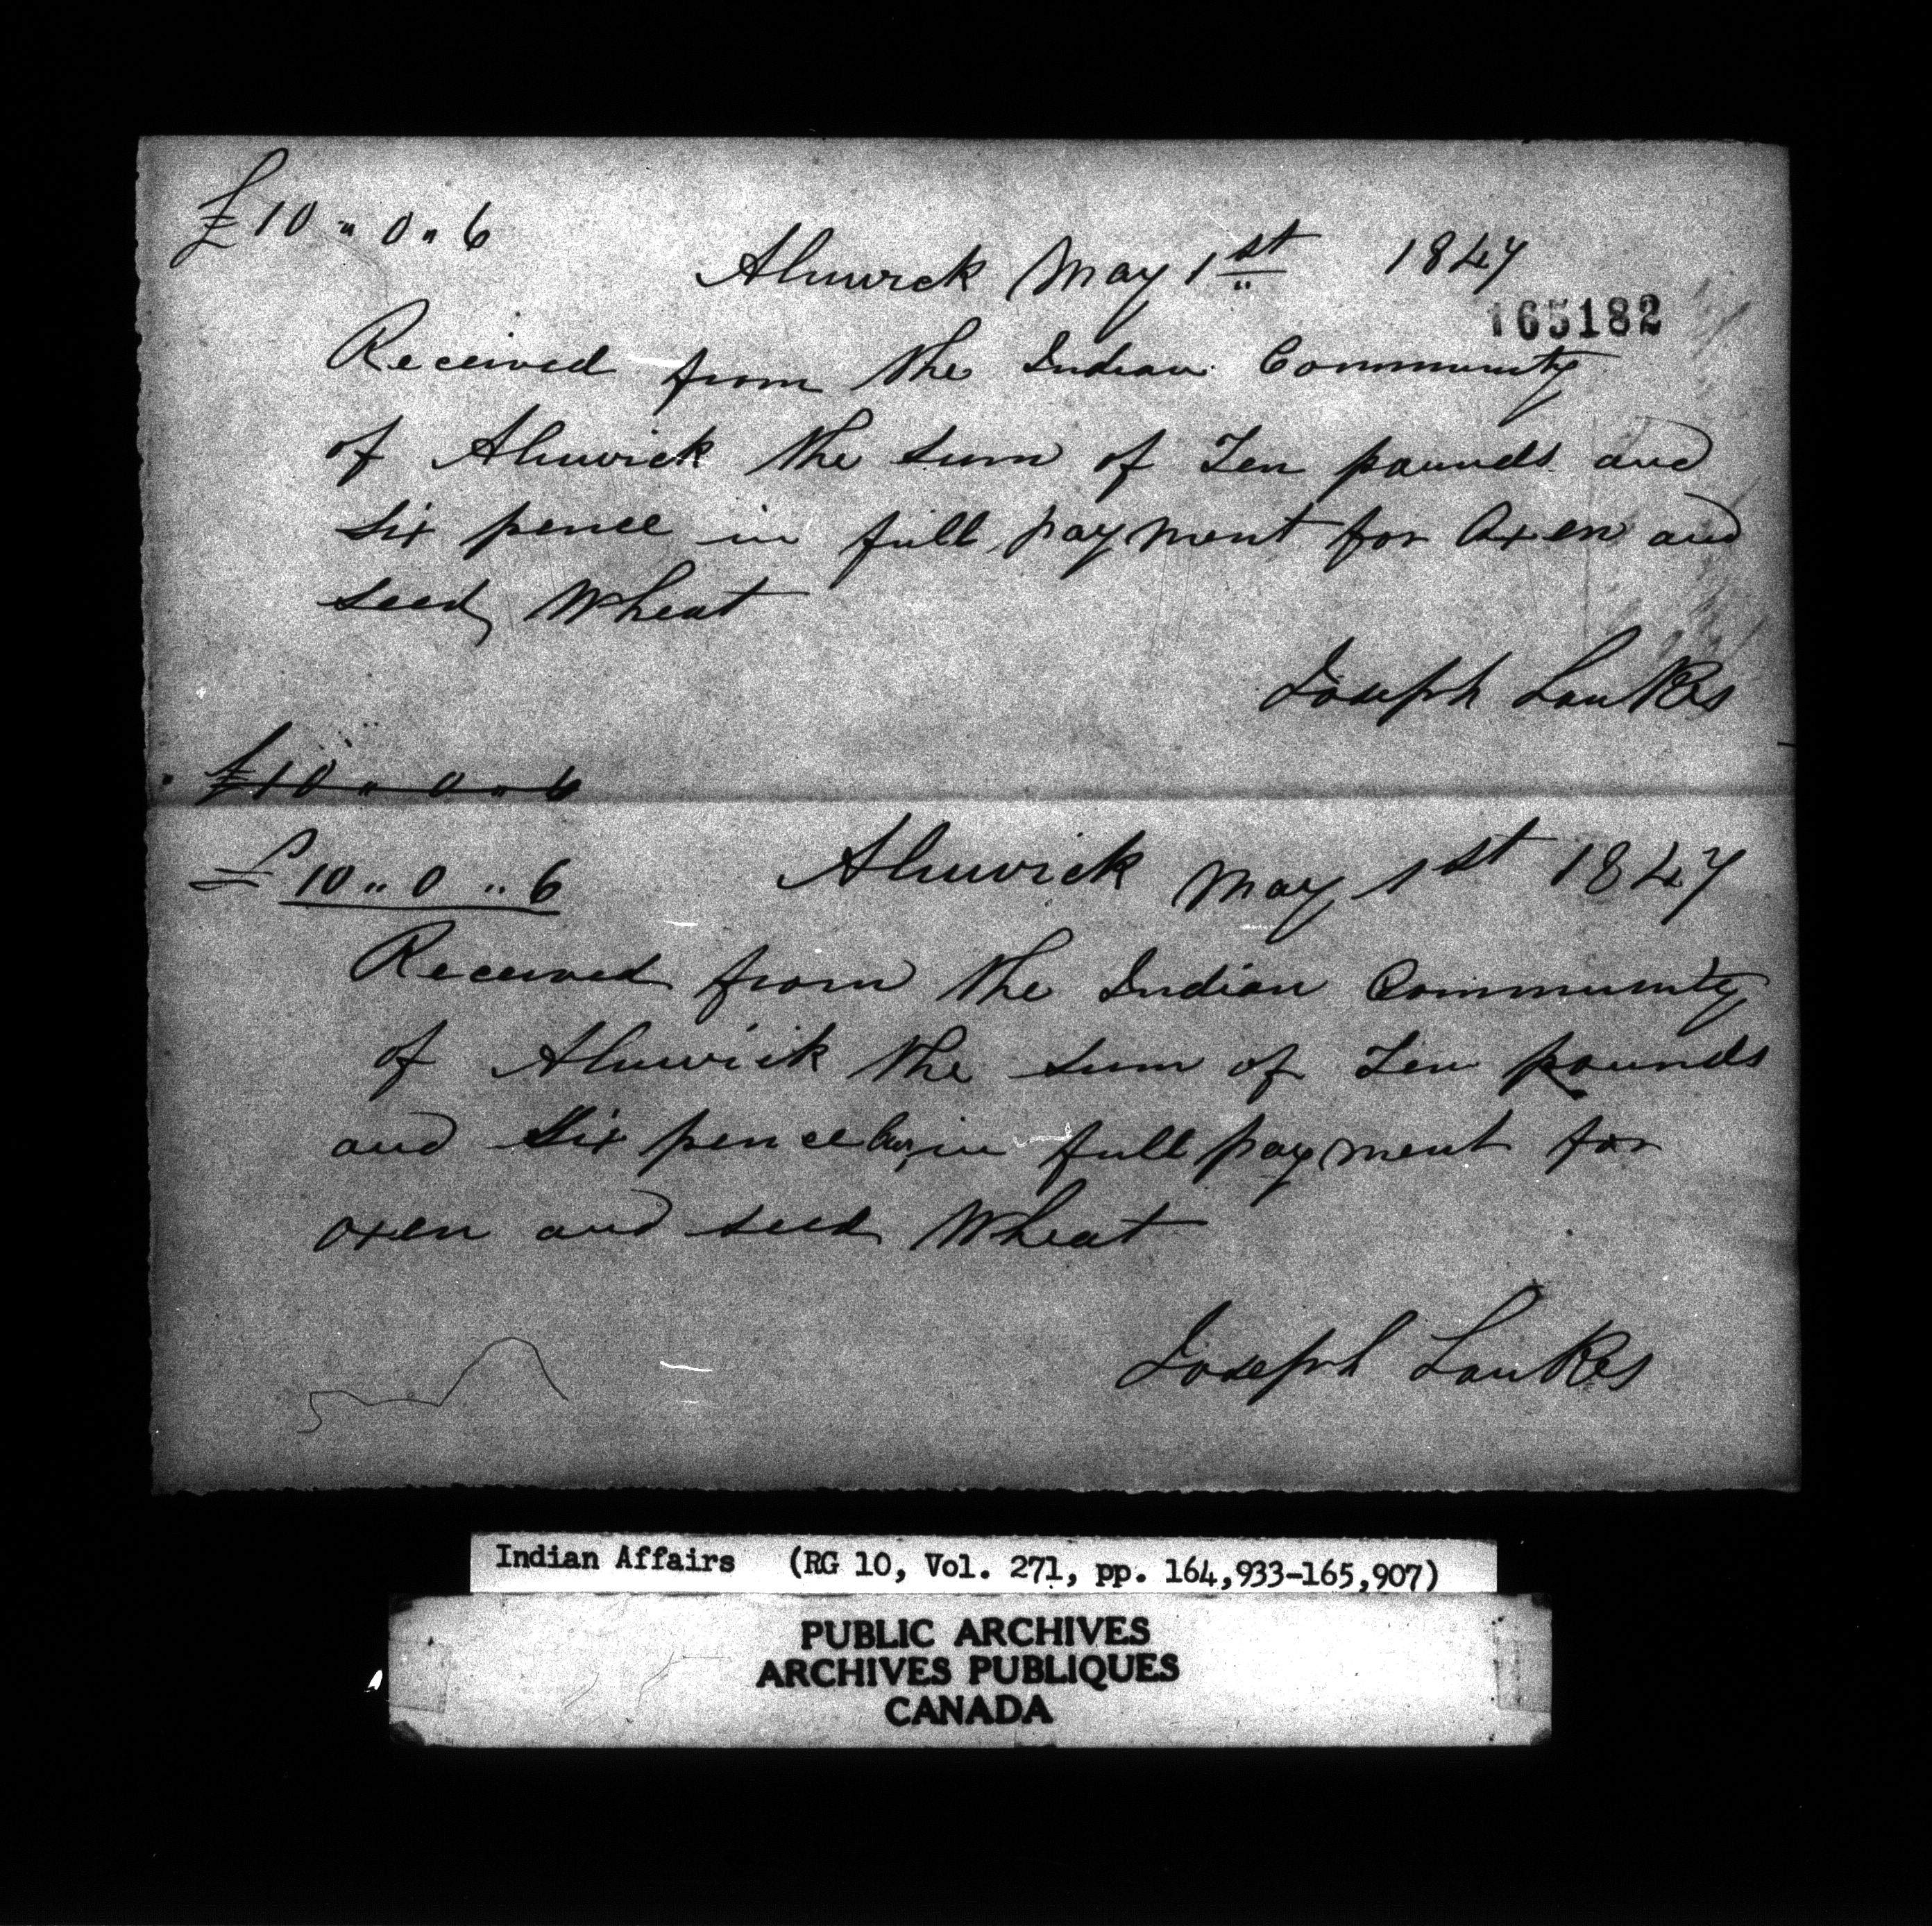 £10 „ 0 „ 6
Alnwick May 1st 1847
165182
Received from the Indian Community
of Alnwick the sum of Ten pounds and
six pence in full payment for Oxen and
seed Wheat
Joseph Lankes
£10 „ 0 „ 6
£ 10 „ 0 „ 6 Alnwick May 1st 1847
Received from the Indian Community
of Alnwick the sum of Ten pounds
and Six pence in full payment for
oxen and seed Wheat
Joseph Lankes
Indian Affairs (RG 10, Vol. 271, pp. 164,933-165,907)
PUBLIC ARCHIVES
ARCHIVES PUBLIQUES
CANADA